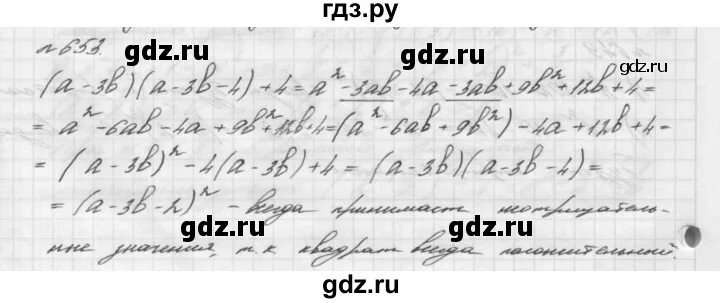 гдз.ру
№653.
gdz.ru gdz.ru
(a - 3b)(a - 3b - 4) + 4 = a² - 3ab - 4a - 3ab + 9b² + 12b + 4 =
= a² - 6ab - 4a + 9b² + 12b + 4 = (a² - 6ab + 9b²) - 4a + 12b + 4 =
gdz.ru gdz.ru
= (a - 3b)² - 4(a - 3b) + 4 = (a - 3b)(a - 3b - 4) =
= (a - 3b - 2)² - всегда принимает неотрицатель-
gdz.ru gdz.ru
ные значения, т.к квадрат всегда положительный.
gdz.ru